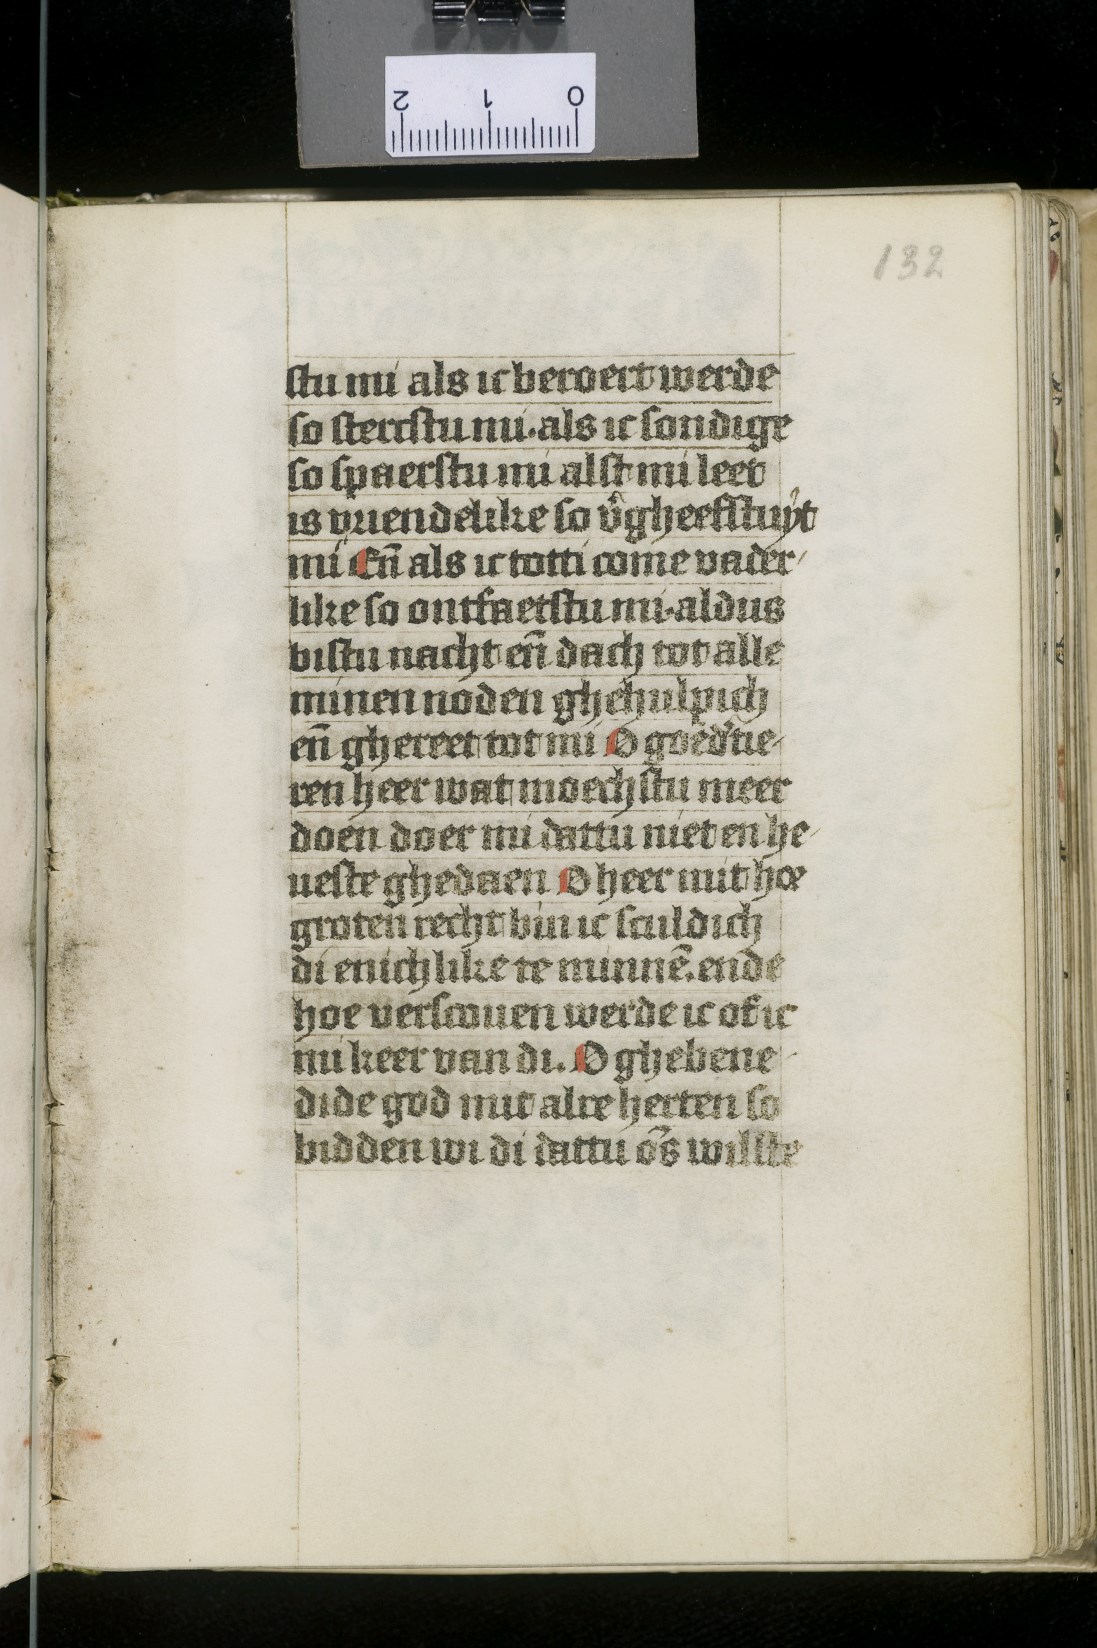 2 1 0
132
stu mi als ic beroert werde
so stercstu mi. als ic sondige
so spaerstu mi alst mi leet
is vriendelike so v̂gheefstuyt
mi Eñ als ic totti come vader-
like so ontfaetstu mi. aldus
bistu nacht eñ dach tot alle
minen noden ghehulpich
eñ ghereet tot mi O goed'tie-
ren heer wat moechstu meer
doen doer mi dattu niet en he-
ueste ghedaen O heer mit hoe
groten recht bin ic sculdich
di enichlike te minnē. ende
hoe verscouen werde ic of ic
mi keer van di. O ghebene-
dide god mit alre herten so
bidden wi di dattu ōs willste